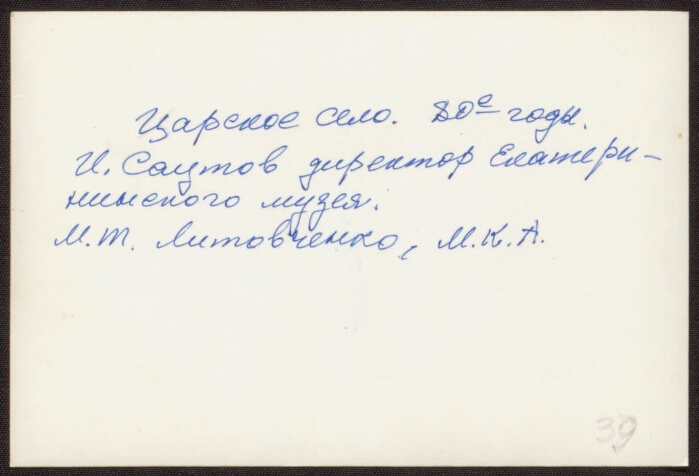 Царское село. 80е годы.
И. Саутов директор Екатери-
нинского музея.
М.Т. Литовченко, М.К.А.
39